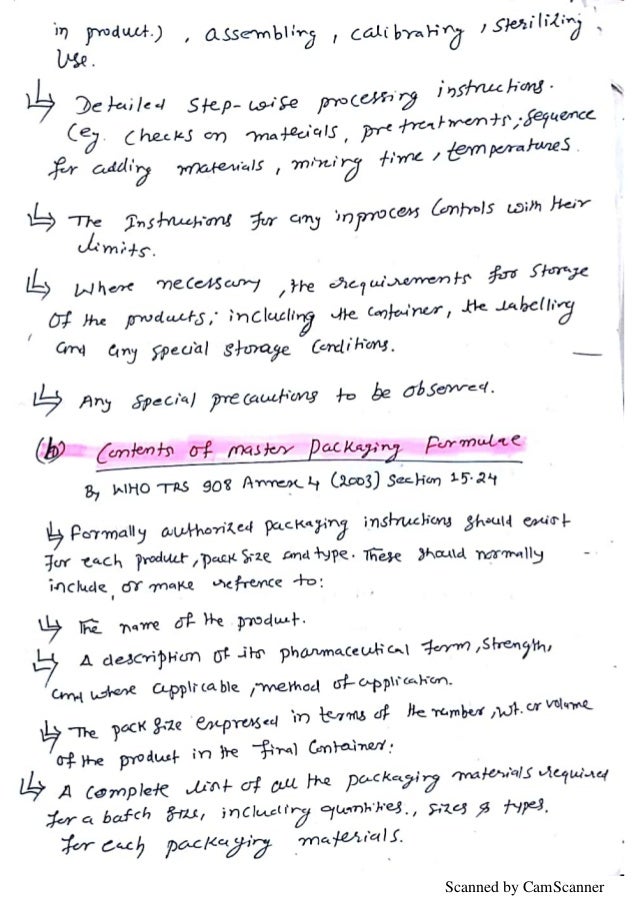 in product.) , assembling , calibrating , sterilizing
Use.
↳ Detailed Step-wise processing instructions.
(eg. checks on materials, pretreatments, sequence
for adding materials, mixing time, temperatures.
↳ The Instructions for any inprocess Controls with their
limits.
↳ Where necessary, the requirements for Storage
Of the products; including the Container, the labelling
and any special storage Conditions.
↳ Any special precautions to be observed.
(b) Contents of master Packaging Formulae
By WHO TRS 908 Annex 4 (2003) Section 15.24
↳ Formally authorized packaging instructions should exist
for each product, pack size and type. These should normally
include, or make refrence to:
↳ The name of the product.
↳ A description of its pharmaceutical form, strength,
and where applicable, method of application.
↳ The pack size expressed in terms of the number, wt. or volume
of the product in the final Container:
↳ A Complete list of all the packaging materials required
for a batch size, including quantities., sizes & types.
for each packaging materials.
Scanned by CamScanner